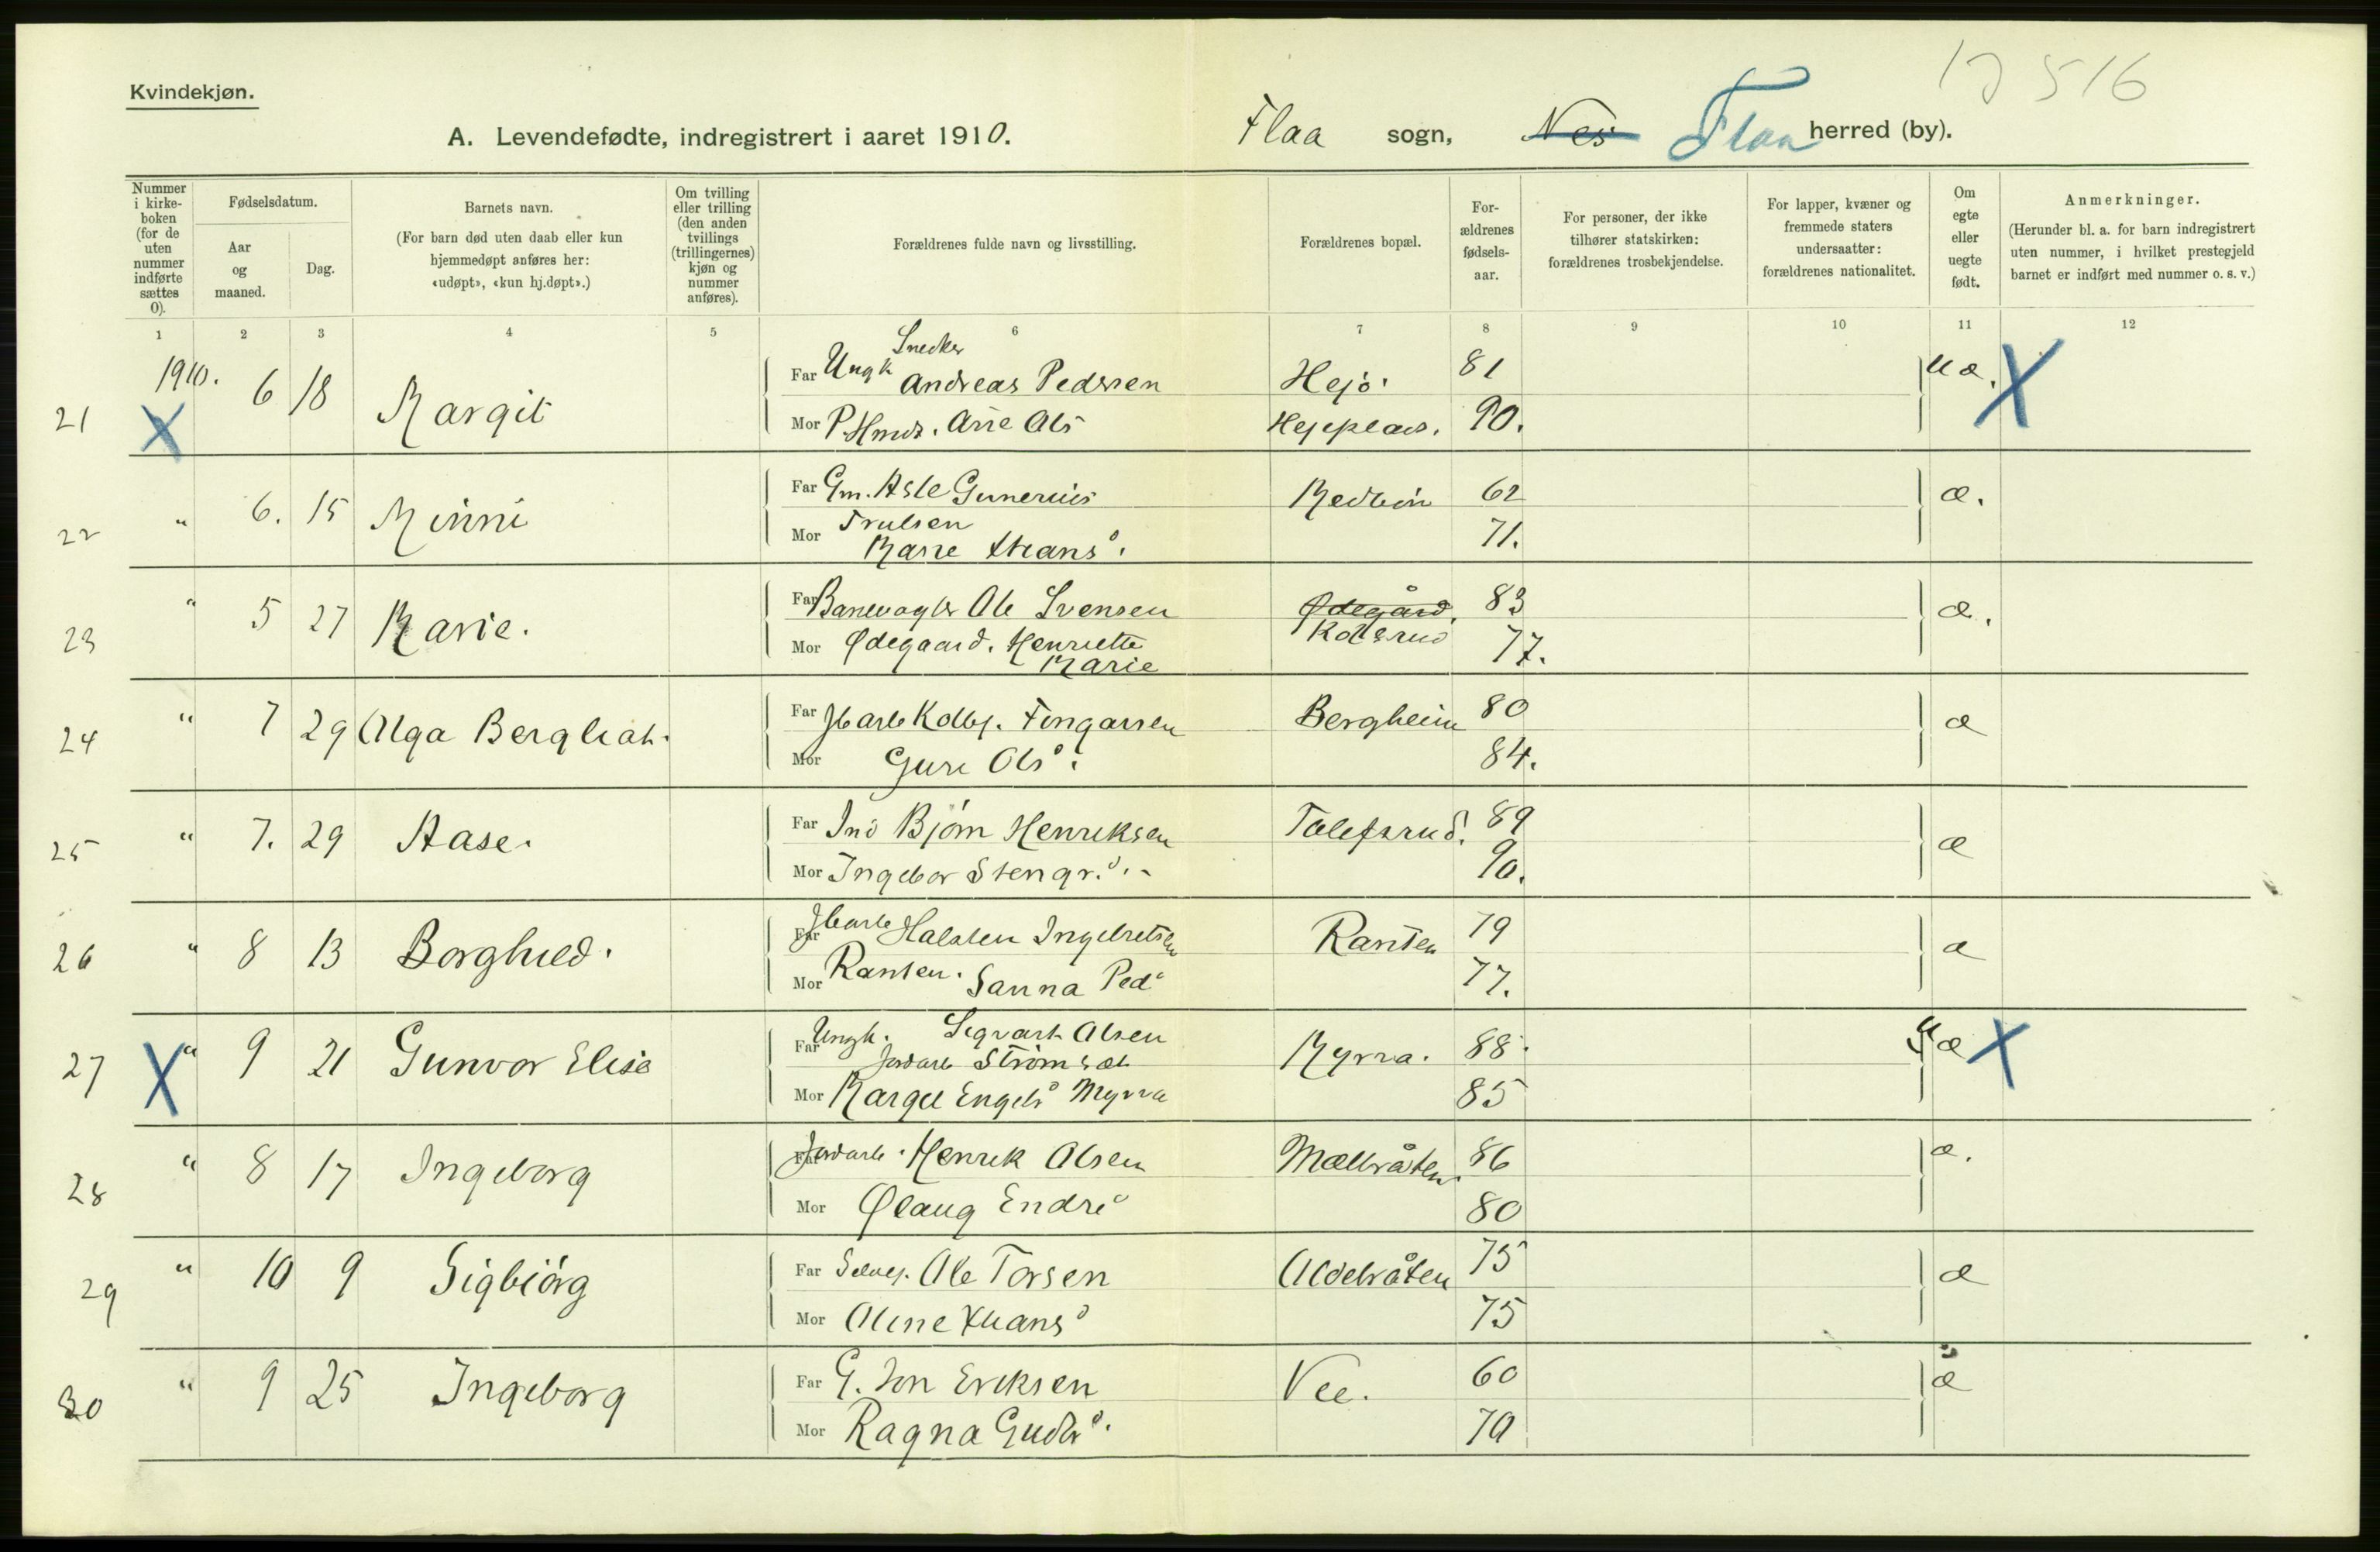 Kvindekjøn.
A. Levendefødte, indregistrert i aaret 1910.
Flaa sogn, Nes Flaa herred (by).
Nummer i kirkeboken (for de uten nummer indførte sættes 0).
Fødselsdatum.
Aar og maaned.
Dag.
Barnets navn.
(For barn død uten daab eller kun hjemmedøpt anføres her: «udøpt», «kun hj.døpt».)
Om tvilling eller trilling (den anden tvillings (trillingernes) kjøn og nummer anføres).
Forældrenes fulde navn og livsstilling.
Forældrenes bopæl.
Forældrenes fødselsaar.
For personer, der ikke tilhører statskirken: forældrenes trosbekjendelse.
For lapper, kvæner og fremmede staters undersaatter: forældrenes nationalitet.
Om egte eller uegte født.
Anmerkninger.
(Herunder bl. a. for barn indregistrert uten nummer, i hvilket prestegjeld barnet er indført med nummer o. s. v.)
1 2 3 4 5 6 7 8 9 10 11 12
21 X 1910. 6 18 Margit Far Ungk Snedker Andreas Pedersen Hejo. 81 uæ. X
Mor P. Ols 90.
22 " 6. 15 Minni Far Gm. Asle Gunerius 62 æ.
Mor Trulsen
Marie Hans 71.
23 " 5 27 Marie. Far Banevogter Ole Svensen Ødegård. 83 æ.
Mor Ødegaard. Henriette Kolsrud 77.
Marie
24 " 7 29 Olga Bergliot. Far Kolbj. Fingarsen Bergheim 80 æ
Mor Guri Ols 84.
25 " 7. 29 Aase. Far Ind Bjørn Henriksen Tolefsrud. 89 æ
Mor Ingebor Stengr. 90.
26 " 8 13 Borghild. Far Halsten Ingebretsen Ranten 79 æ
Mor Ranten. Sanna Ped 77.
27 X " 9 21 Gunvor Elise Far Ungk. Sigvart Olsen Myrra. 88. uæ X
Jordarb Strømsæt
Mor Margit Engebr Myrra 85
28 " 8 17 Ingeborg Far Jordarb. Henrik Olsen 86 æ.
Mor Ølaug Endre 80
29 " 10 9 Sigbjørg Far Selvej. Ole Torsen 75 æ
Mor Oline Hans 75
30 " 9 25 Ingeborg Far G. Jon Eriksen Vee. 60 æ
Mor Ragna Gudbr. 70